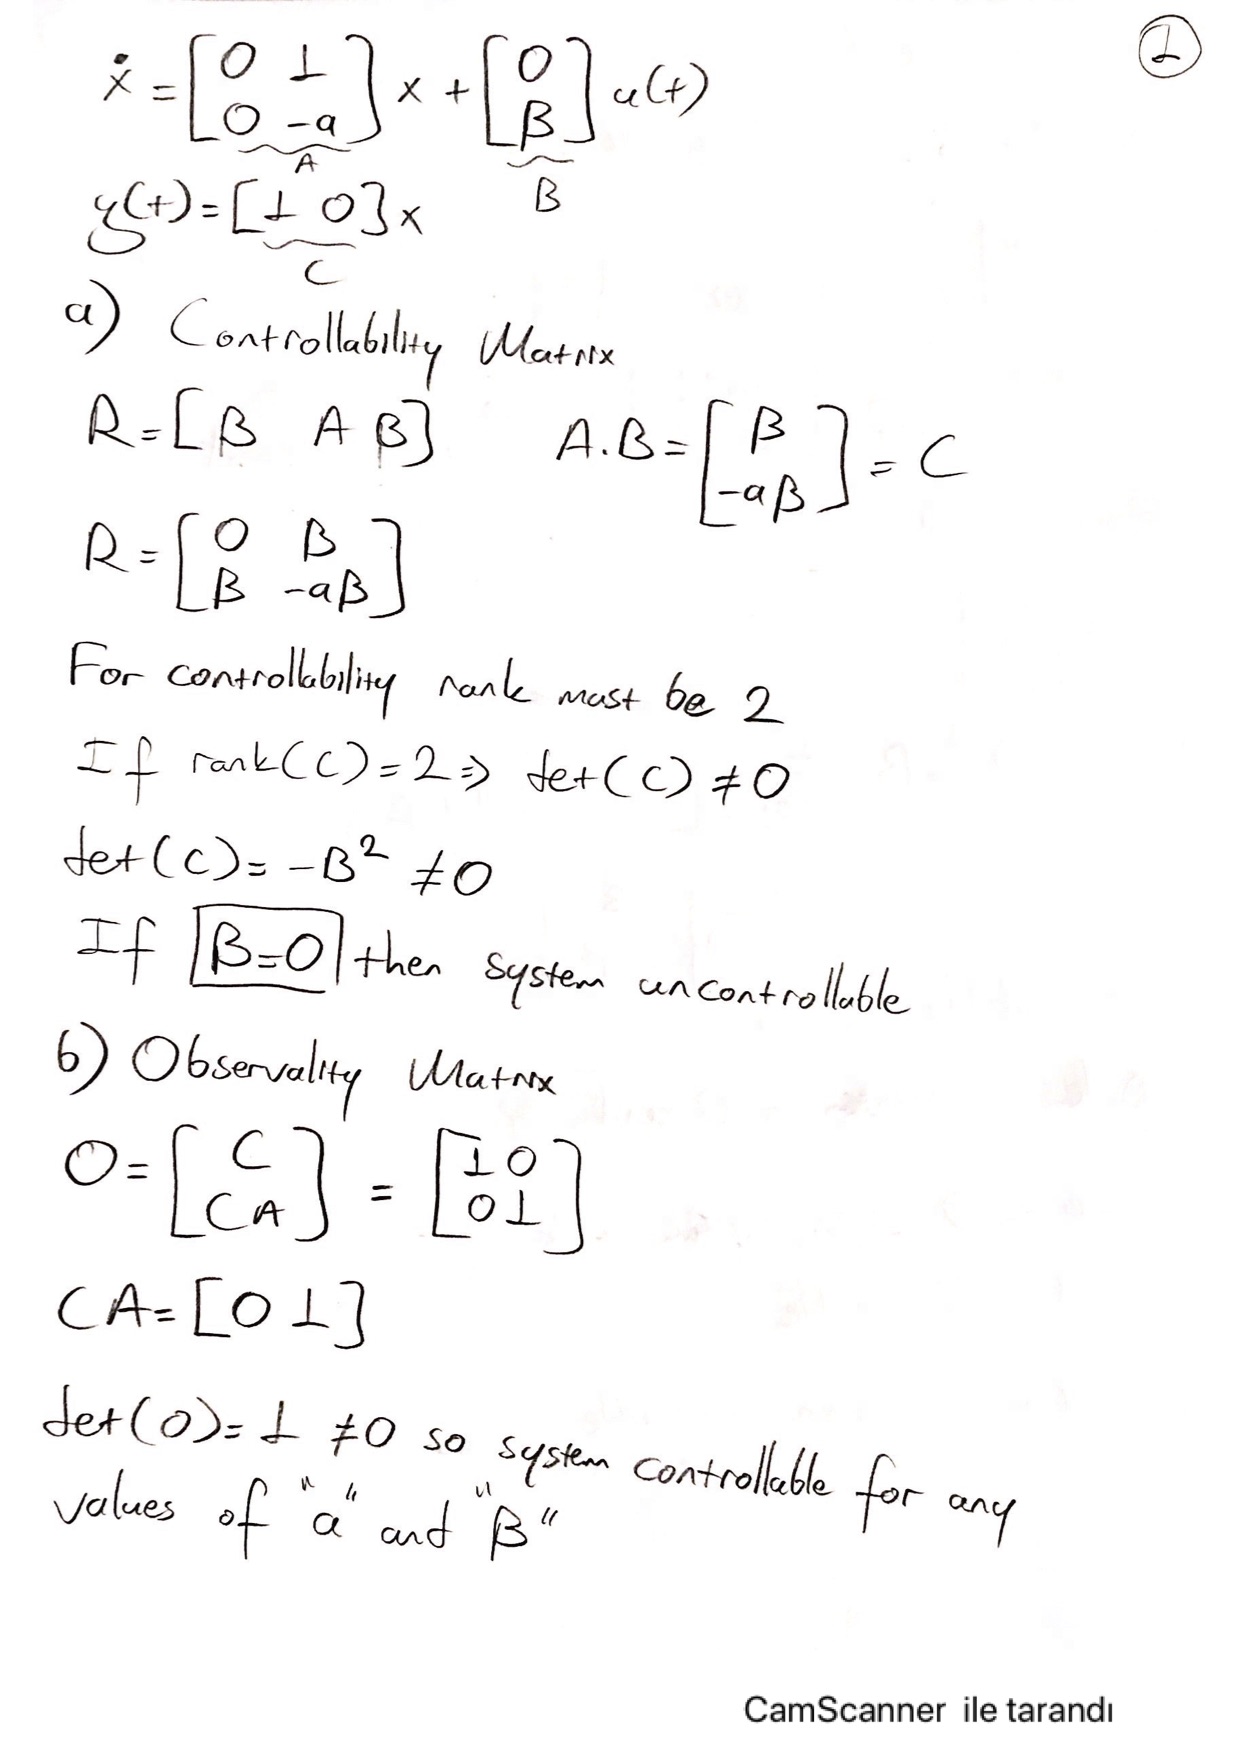 ①
ẋ = [0 1; 0 -a] x + [0; β] u(t)
A
B
y(t) = [1 0] x
C
a) Controllability Matrix
R = [B A B] A.B = [β; -aβ] = C
R = [0 β; β -aβ]
For controllability rank must be 2
If rank(C) = 2 ⇒ det(C) ≠ 0
det(C) = -β² ≠ 0
If β=0 then system uncontrollable
b) Observality Matrix
O = [C; CA] = [1 0; 0 1]
CA = [0 1]
det(O) = 1 ≠ 0 so system controllable for any
values of "a" and "β"
CamScanner ile tarandı